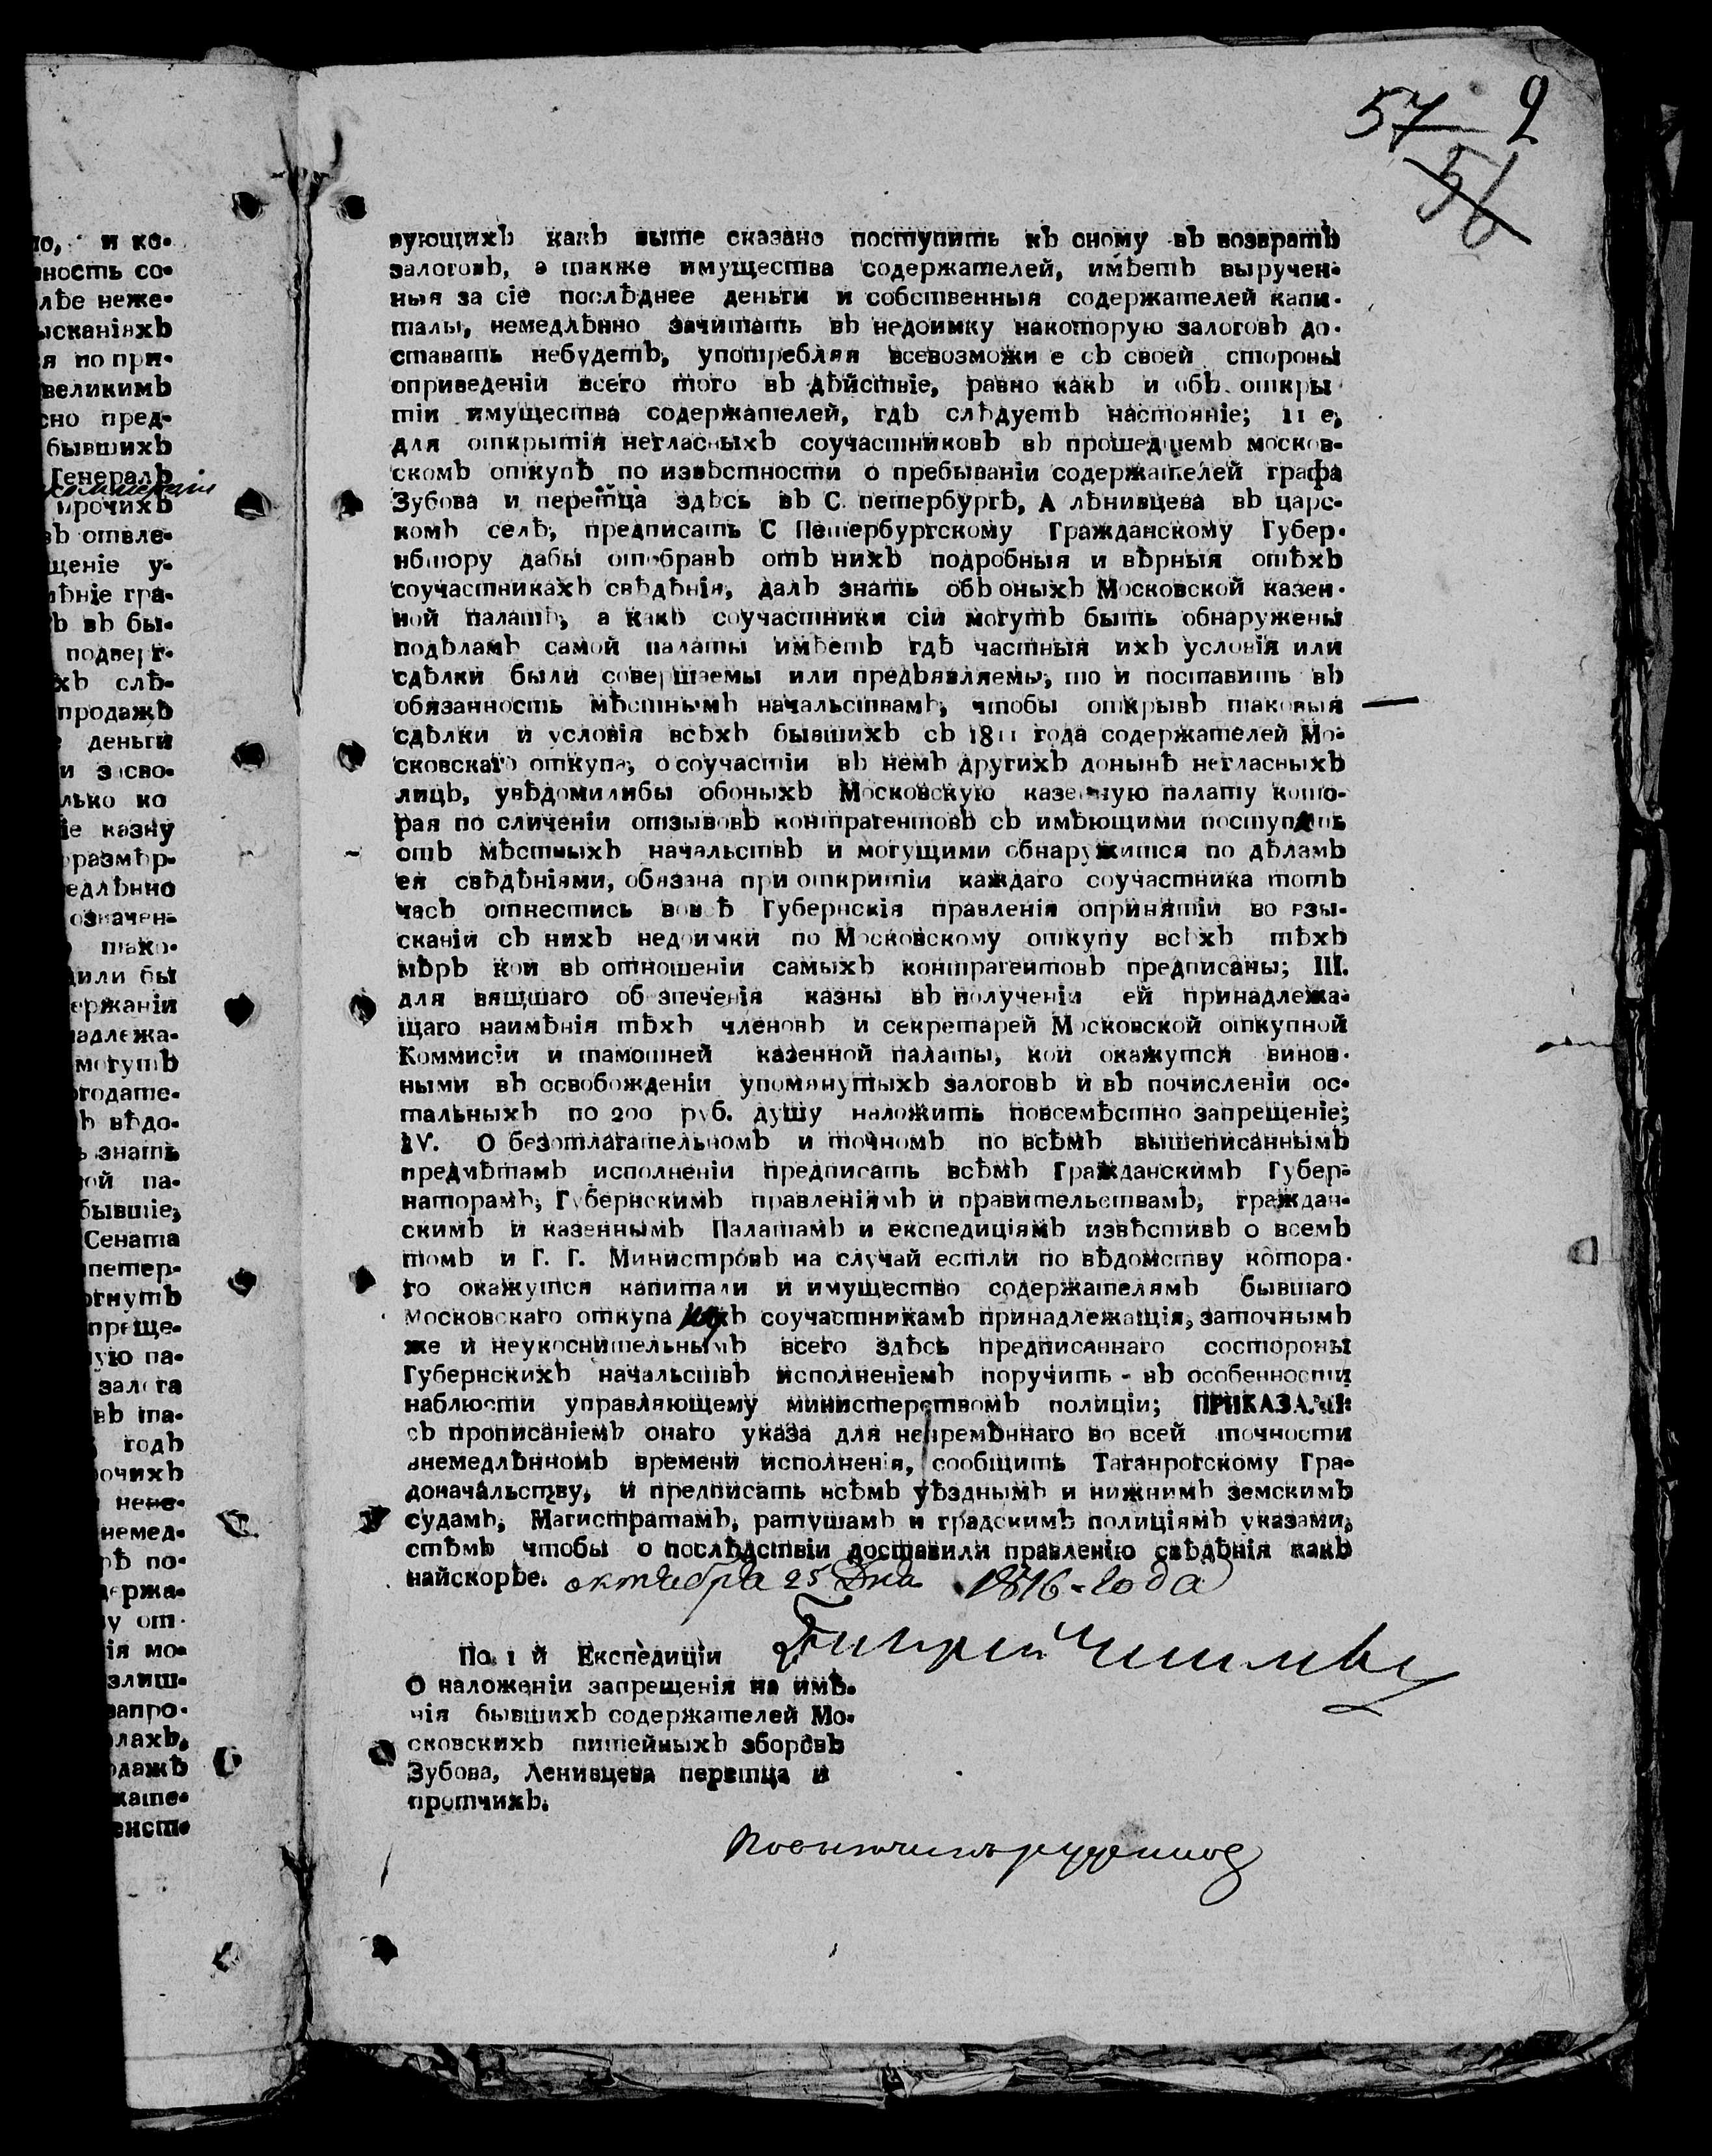 57 2
56
вующихъ какъ выше сказано поступить къ оному въ возвратъ
залоговъ, а также имущества содержателей, имѣетъ выручен-
ныя за сіе послѣднее деньги и собственныя содержателей капи-
талы, немедлѣнно зачитать въ недоимку накоторую залоговъ до-
ставать небудетъ, употребляя всевозможн е съ своей стороны
оприведеніи всего того въ дѣйствіе, равно какъ и объ откры
тіи имущества содержателей, гдѣ слѣдуетъ настояніе; 11 е,
для открытія негласныхъ соучастниковъ въ прошедшемъ москов-
скомъ откупѣ по извѣстности о пребываніи содержателей графа
Зубова и перетца здѣсь въ С. петербургѣ, А лѣнивцева въ царс-
комъ селѣ, предписать С Петербургскому Гражданскому Губер-
нбтору дабы отобравъ отъ нихъ подробныя и вѣрныя отѣхъ
соучастникахъ свѣдѣнія, далъ знать объ оныхъ Московской казен-
ной палатѣ, а какъ соучастники сіи могутъ быть обнаружены
подѣламъ самой палаты имѣетъ гдѣ частныя ихъ условія или
сдѣлки были совершаемы или предъявляемы, то и поставить въ
обязанность мѣстнымъ начальствамъ, чтобы открывъ таковыя
сдѣлки и условія всѣхъ бывшихъ съ 1811 года содержателей Мо-
сковскаго откупа, о соучастіи въ немъ другихъ донынѣ негласныхъ
лицъ, увѣдомилибы обоныхъ Московскую казенную палату кото-
рая по сличеніи отзывовъ контрагентовъ съ имѣющими поступать
отъ мѣстныхъ начальствъ и могущими обнаружится по дѣламъ
ея свѣдѣніями, обязана при откритіи каждаго соучастника тотъ
часъ отнестись вовсѣ Губернскія правленія опринятіи во взы-
сканіи съ нихъ недоимки по Московскому откупу всѣхъ тѣхъ
мѣръ кои въ отношеніи самыхъ контрагентовъ предписаны; III.
для вящшаго об зпеченія казны въ полученіи ей принадлежа-
щаго наимѣнія тѣхъ членовъ и секретарей Московской откупной
Коммисіи и тамошней казенной палаты, кои окажутся винов-
ными въ освобожденіи упомянутыхъ залоговъ и въ почисленіи ос-
тальныхъ по 200 руб. душу наложить повсемѣстно запрещеніе;
IV. О безотлагательномъ и точномъ по всѣмъ вышеписаннымъ
предмѣтамъ исполненіи предписать всѣмъ Гражданскимъ Губер-
наторамъ, Губернскимъ правленіямъ и правительствамъ, граждан-
скимъ и казеннымъ Палатамъ и експедиціямъ извѣстивъ о всемъ
томъ и Г. Г. Министровъ на случай естли по вѣдомству котора-
го окажутся капитали и имущество содержателямъ бывшаго
московскаго откупа ихъ соучастникамъ принадлежащія, заточнымъ
же и неукоснительнымъ всего здѣсь предписаннаго состороны
Губернскихъ начальствъ исполненіемъ поручить въ особенности
наблюсти управляющему министерствомъ полиціи; ПРИКАЗАЛИ:
съ прописаніемъ онаго указа для непремѣннаго во всей точности
внемедлѣнномъ времени исполненія, сообщить Таганрогскому Гра-
доначальству, и предписать всѣмъ уѣзднымъ и нижнимъ земскимъ
судамъ, Магистратамъ, ратушамъ и градскимъ полиціямъ указами,
стѣмъ чтобы о послѣдствіи доставили правленію свѣдѣнія какъ
найскорѣе. октября 25 Дня 1816 - года
По 1 й Експедиціи
О наложеніи запрещенія на имѣ-
нія бывшихъ содержателей Мо-
сковскихъ питейныхъ зборовъ
Зубова, Ленивцева перетца и
протчихъ.
но, и ко-
ность со-
лѣе неже-
ысканіяхъ
я по при-
великимъ
сно пред-
бывшихъ
Генералъ
прочихъ
въ отвле-
щеніе у-
ѣніе гра-
ъ въ бы-
подверг-
хъ слѣ-
продажѣ
деньги
и засво-
лько ко
іе казну
размѣр-
едлѣнно
означен-
тако-
дили бы
ержаніи
надлежа-
могутъ
огодате-
ъ вѣдо-
ь знать
ой па-
бывшіе,
Сената
петер-
ргнутъ
преще-
ую па-
залога
въ та-
годъ
очихъ
нене-
немед-
рѣ по-
держа-
у от-
ія мо-
злиш-
запро-
лахъ,
одажѣ
жате-
енст-